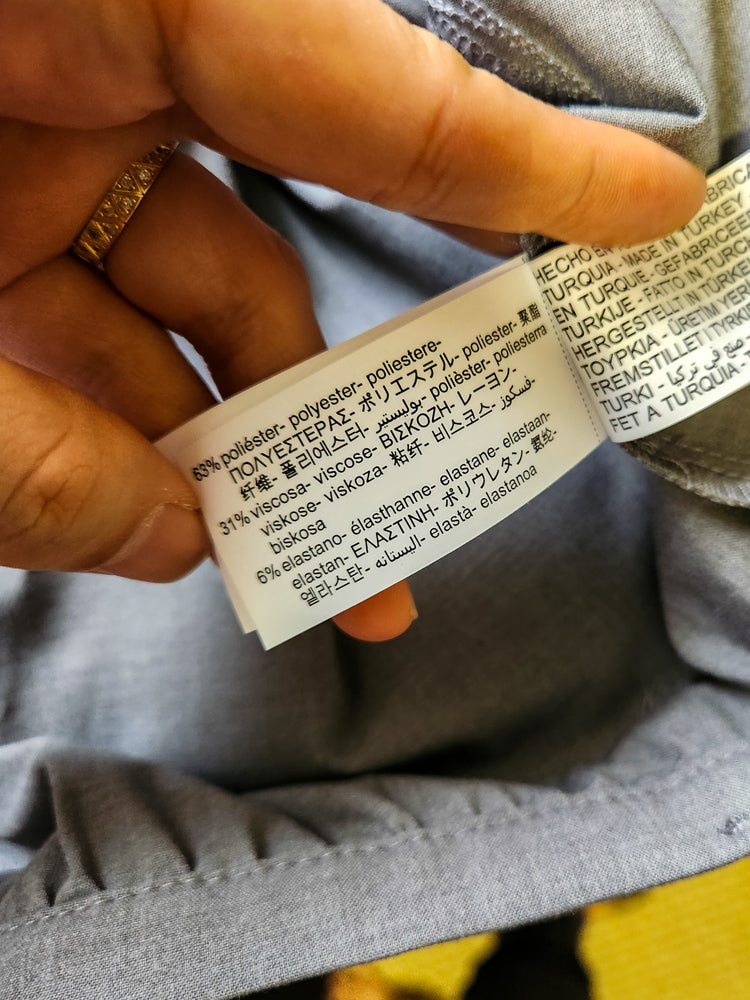 63% poliéster- polyester- poliestere-
ΠΟΛΥΕΣΤΕΡΑΣ- ポリエステル- poliester- 聚酯
纤维- 폴리에스터- بوليستير- polièster- poliesterra
31% viscosa- viscose- ΒΙΣΚΟΖΗ- レーヨン-
viskose- viskoza- 粘纤- 비스코스- فسكوز-
biskosa
6% elastano- élasthanne- elastane- elastaan-
elastan- ΕΛΑΣΤΙΝΗ- ポリウレタン- 氨纶-
엘라스탄- اليستانه- elastà- elastanoa
HECHO
TURQUIA- MADE IN TURKEY
EN TURQUIE- GEFABRICEE
TURKIJE- FATTO IN TURC
HERGESTELLT IN TÜRKE
ΤΟΥΡΚΙΑ- ÜRETIM YER
FREMSTILLET I TYRKI
TURKI- صنع في تركيا-
FET A TURQUIA-